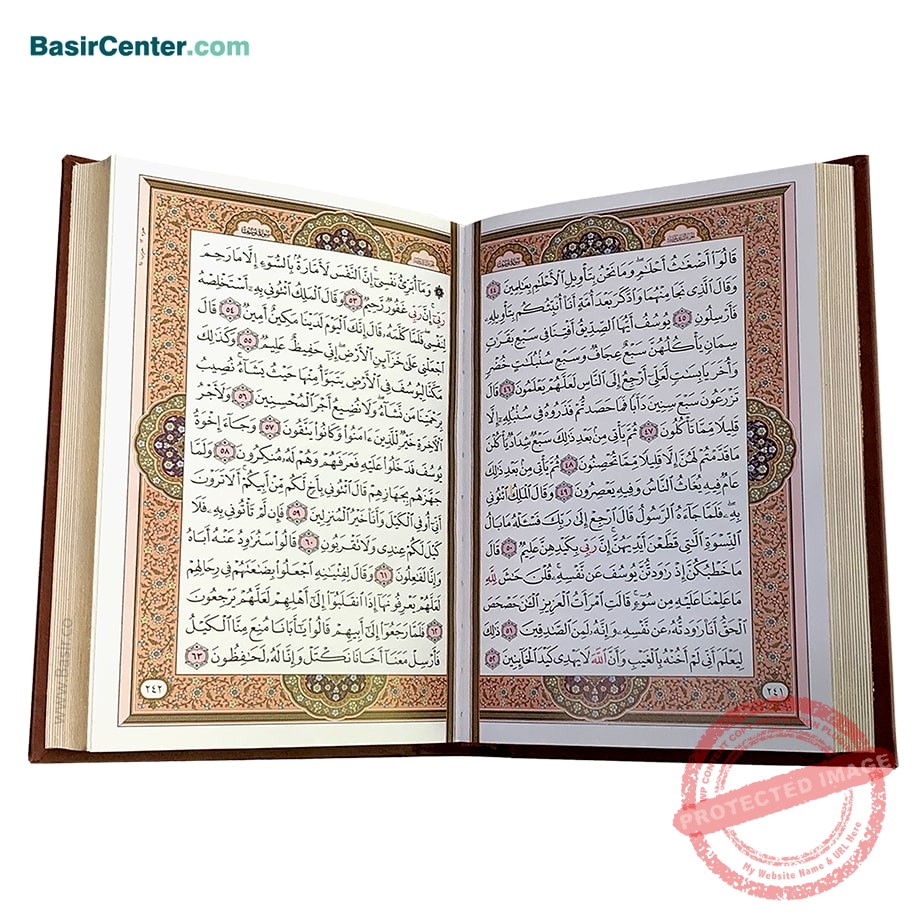 BasirCenter.com
قَالُوٓا۟ أَضْغَـٰثُ أَحْلَـٰمٍ وَمَا نَحْنُ بِتَأْوِيلِ ٱلْأَحْلَـٰمِ بِعَـٰلِمِينَ ٤٤
وَقَالَ ٱلَّذِى نَجَا مِنْهُمَا وَٱدَّكَرَ بَعْدَ أُمَّةٍ أَنَا۠ أُنَبِّئُكُم بِتَأْوِيلِهِۦ
فَأَرْسِلُونِ ٤٥ يُوسُفُ أَيُّهَا ٱلصِّدِّيقُ أَفْتِنَا فِى سَبْعِ بَقَرَٰتٍ
سِمَانٍ يَأْكُلُهُنَّ سَبْعٌ عِجَافٌ وَسَبْعِ سُنۢبُلَـٰتٍ خُضْرٍ
وَأُخَرَ يَابِسَـٰتٍ لَّعَلِّىٓ أَرْجِعُ إِلَى ٱلنَّاسِ لَعَلَّهُمْ يَعْلَمُونَ ٤٦ قَالَ
تَزْرَعُونَ سَبْعَ سِنِينَ دَأَبًا فَمَا حَصَدتُّمْ فَذَرُوهُ فِى سُنۢبُلِهِۦٓ إِلَّا
قَلِيلًا مِّمَّا تَأْكُلُونَ ٤٧ ثُمَّ يَأْتِى مِنۢ بَعْدِ ذَٰلِكَ سَبْعٌ شِدَادٌ يَأْكُلْنَ
مَا قَدَّمْتُمْ لَهُنَّ إِلَّا قَلِيلًا مِّمَّا تُحْصِنُونَ ٤٨ ثُمَّ يَأْتِى مِنۢ بَعْدِ ذَٰلِكَ
عَامٌ فِيهِ يُغَاثُ ٱلنَّاسُ وَفِيهِ يَعْصِرُونَ ٤٩ وَقَالَ ٱلْمَلِكُ ٱئْتُونِى
بِهِۦ فَلَمَّا جَآءَهُ ٱلرَّسُولُ قَالَ ٱرْجِعْ إِلَىٰ رَبِّكَ فَسْـَٔلْهُ مَا بَالُ
ٱلنِّسْوَةِ ٱلَّـٰتِى قَطَّعْنَ أَيْدِيَهُنَّ إِنَّ رَبِّى بِكَيْدِهِنَّ عَلِيمٌ ٥٠ قَالَ
مَا خَطْبُكُنَّ إِذْ رَٰوَدتُّنَّ يُوسُفَ عَن نَّفْسِهِۦ قُلْنَ حَـٰشَ لِلَّهِ
مَا عَلِمْنَا عَلَيْهِ مِن سُوٓءٍ قَالَتِ ٱمْرَأَتُ ٱلْعَزِيزِ ٱلْـَٔـٰنَ حَصْحَصَ
ٱلْحَقُّ أَنَا۠ رَٰوَدتُّهُۥ عَن نَّفْسِهِۦ وَإِنَّهُۥ لَمِنَ ٱلصَّـٰدِقِينَ ٥١ ذَٰلِكَ
لِيَعْلَمَ أَنِّى لَمْ أَخُنْهُ بِٱلْغَيْبِ وَأَنَّ ٱللَّهَ لَا يَهْدِى كَيْدَ ٱلْخَآئِنِينَ ٥٢
٢٤١
وَمَآ أُبَرِّئُ نَفْسِىٓ إِنَّ ٱلنَّفْسَ لَأَمَّارَةٌۢ بِٱلسُّوٓءِ إِلَّا مَا رَحِمَ
رَبِّىٓ إِنَّ رَبِّى غَفُورٌ رَّحِيمٌ ٥٣ وَقَالَ ٱلْمَلِكُ ٱئْتُونِى بِهِۦٓ أَسْتَخْلِصْهُ
لِنَفْسِى فَلَمَّا كَلَّمَهُۥ قَالَ إِنَّكَ ٱلْيَوْمَ لَدَيْنَا مَكِينٌ أَمِينٌ ٥٤ قَالَ
ٱجْعَلْنِى عَلَىٰ خَزَآئِنِ ٱلْأَرْضِ إِنِّى حَفِيظٌ عَلِيمٌ ٥٥ وَكَذَٰلِكَ
مَكَّنَّا لِيُوسُفَ فِى ٱلْأَرْضِ يَتَبَوَّأُ مِنْهَا حَيْثُ يَشَآءُ نُصِيبُ
بِرَحْمَتِنَا مَن نَّشَآءُ وَلَا نُضِيعُ أَجْرَ ٱلْمُحْسِنِينَ ٥٦ وَلَأَجْرُ
ٱلْـَٔاخِرَةِ خَيْرٌ لِّلَّذِينَ ءَامَنُوا۟ وَكَانُوا۟ يَتَّقُونَ ٥٧ وَجَآءَ إِخْوَةُ
يُوسُفَ فَدَخَلُوا۟ عَلَيْهِ فَعَرَفَهُمْ وَهُمْ لَهُۥ مُنكِرُونَ ٥٨ وَلَمَّا
جَهَّزَهُم بِجَهَازِهِمْ قَالَ ٱئْتُونِى بِأَخٍ لَّكُم مِّنْ أَبِيكُمْ أَلَا تَرَوْنَ
أَنِّىٓ أُوفِى ٱلْكَيْلَ وَأَنَا۠ خَيْرُ ٱلْمُنزِلِينَ ٥٩ فَإِن لَّمْ تَأْتُونِى بِهِۦ فَلَا
كَيْلَ لَكُمْ عِندِى وَلَا تَقْرَبُونِ ٦٠ قَالُوا۟ سَنُرَٰوِدُ عَنْهُ أَبَاهُ
وَإِنَّا لَفَـٰعِلُونَ ٦١ وَقَالَ لِفِتْيَـٰنِهِ ٱجْعَلُوا۟ بِضَـٰعَتَهُمْ فِى رِحَالِهِمْ
لَعَلَّهُمْ يَعْرِفُونَهَآ إِذَا ٱنقَلَبُوٓا۟ إِلَىٰٓ أَهْلِهِمْ لَعَلَّهُمْ يَرْجِعُونَ
٦٢ فَلَمَّا رَجَعُوٓا۟ إِلَىٰٓ أَبِيهِمْ قَالُوا۟ يَـٰٓأَبَانَا مُنِعَ مِنَّا ٱلْكَيْلُ
فَأَرْسِلْ مَعَنَآ أَخَانَا نَكْتَلْ وَإِنَّا لَهُۥ لَحَـٰفِظُونَ ٦٣
٢٤٢
www.Basir.co
PROTECTED IMAGE
My Website Name & URL Here